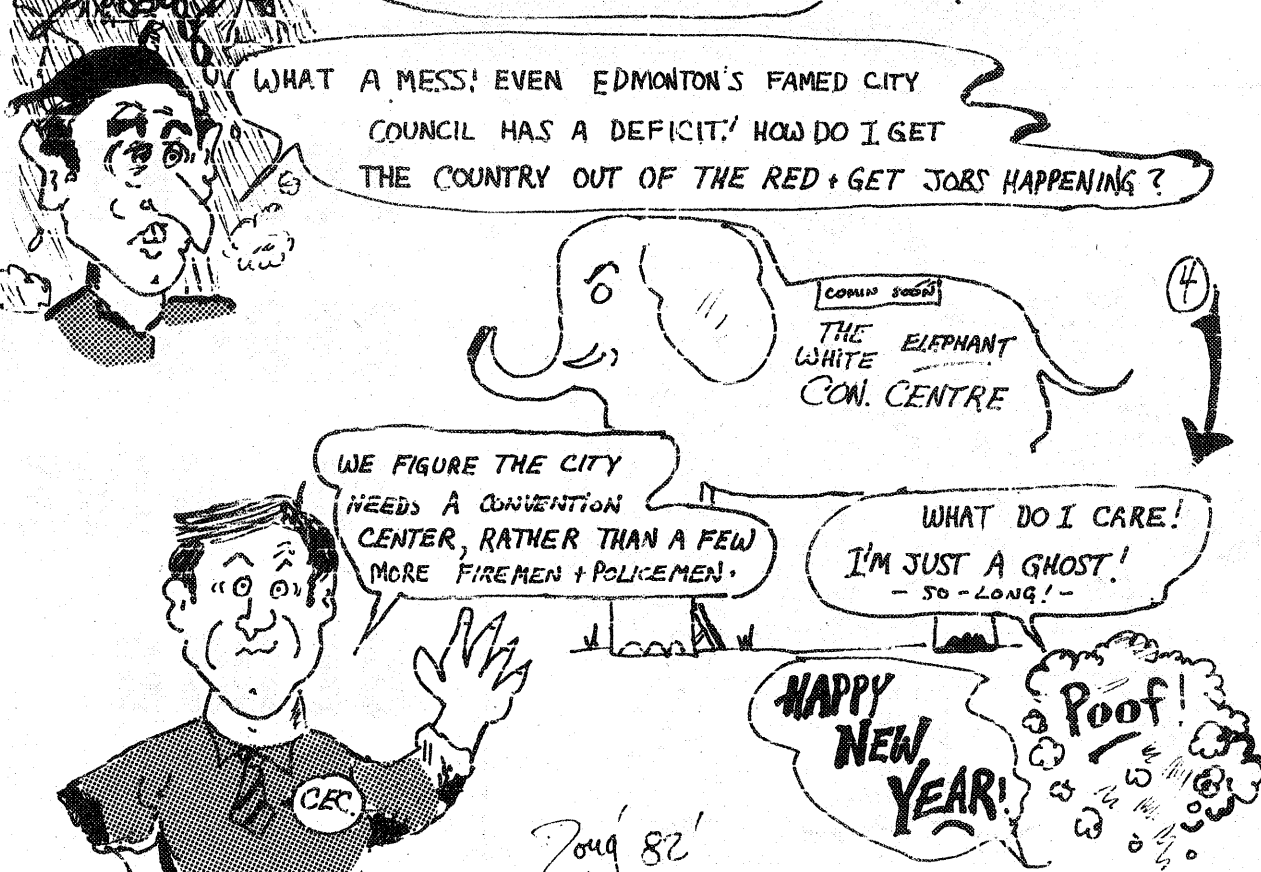 WHAT A MESS! EVEN EDMONTON'S FAMED CITY
COUNCIL HAS A DEFICIT! HOW DO I GET
THE COUNTRY OUT OF THE RED + GET JOBS HAPPENING?
4
COMIN SOON
THE
WHITE ELEPHANT
CON. CENTRE
WE FIGURE THE CITY
NEEDS A CONVENTION
CENTER, RATHER THAN A FEW
MORE FIREMEN + POLICEMEN.
WHAT DO I CARE!
I'M JUST A GHOST!
- SO-LONG! -
HAPPY
NEW
YEAR!
Poof!
CEC.
Doug 82'